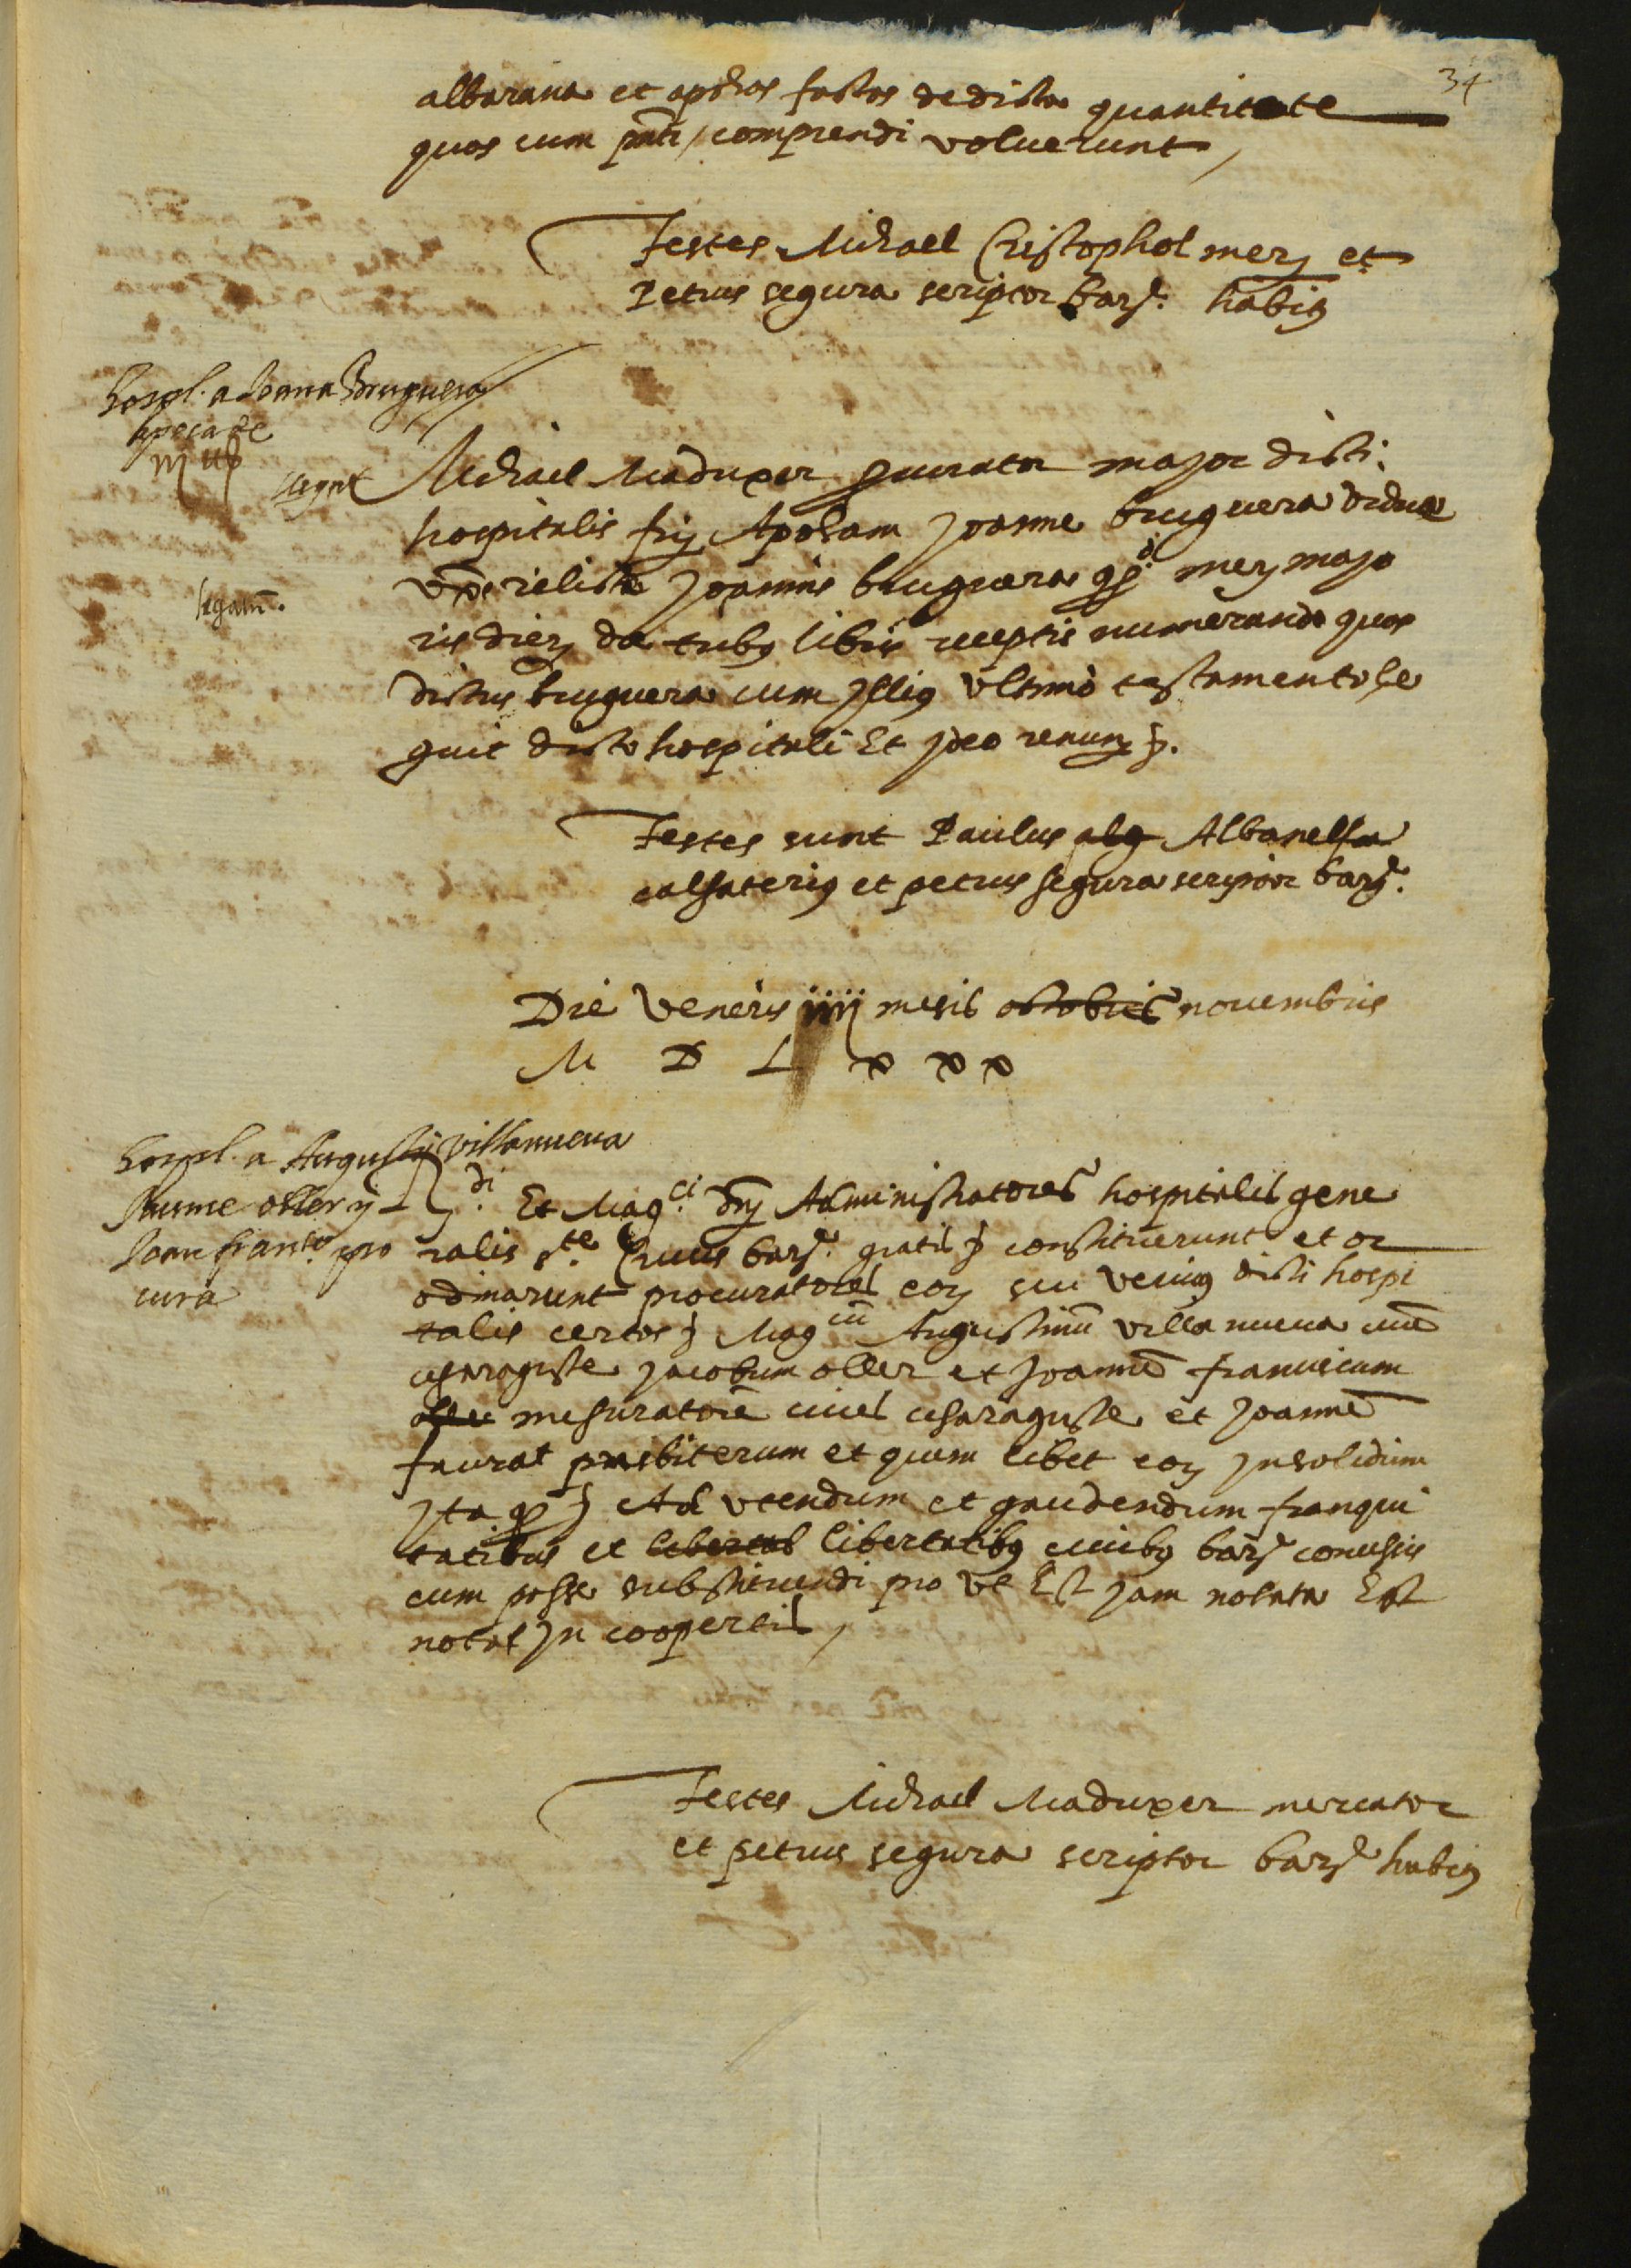 34
albarana et apochas factas de dicta quantitate
quos cum pnti comprendi voluerunt
Testes Michael Cristophol merz et
Petrus segura scriptor barz. habiz
hospl. a Joana Bruguera
apoca de
iij ll
legat
Michael Maduxer procurator major dicti
hospitalis Apocam Joanne bruguera vidue
legatū.
uxor relicta Joannis bruguera qº merz majo
ris diez de tribz libris receptis numerando quos
dictus bruguera cum Illiz ultimo testamento le
guit dicto hospitali Et Jdeo renunz &.
Testes sunt Paulus alb Albanella
calsateriz et petrus segura scriptor barz.
Die veneris iiij mesis octobris novembris
M D L x x x
hospl. a Augusti villanueva
Jaume oller y
Joan franco. pro
cura
di. Et Magci. dnj Administratores hospitalis gene
ralis ste. Crucis barz. gratis & constituerunt et or
odinarunt procuratores eoz seu veriuz dicti hospi
talis certos & Magcū Augustinū villanueva civē
cesarauguste Jacobum oller et Joannē franciscum
oller mesuratorē cives cesarauguste et Joannē
faurat presbiterum et quem libet eoz Jnsolidum
Jta q & Ad utendum et gaudendum franqui
tatibus et libertas libertatibz civibz barz concessis
cum posse substituendi pro ut Est Jam notata Est
notat Jn coopertis
Testes Michael Maduxer mercator
et petrus segura scriptor barz habiz